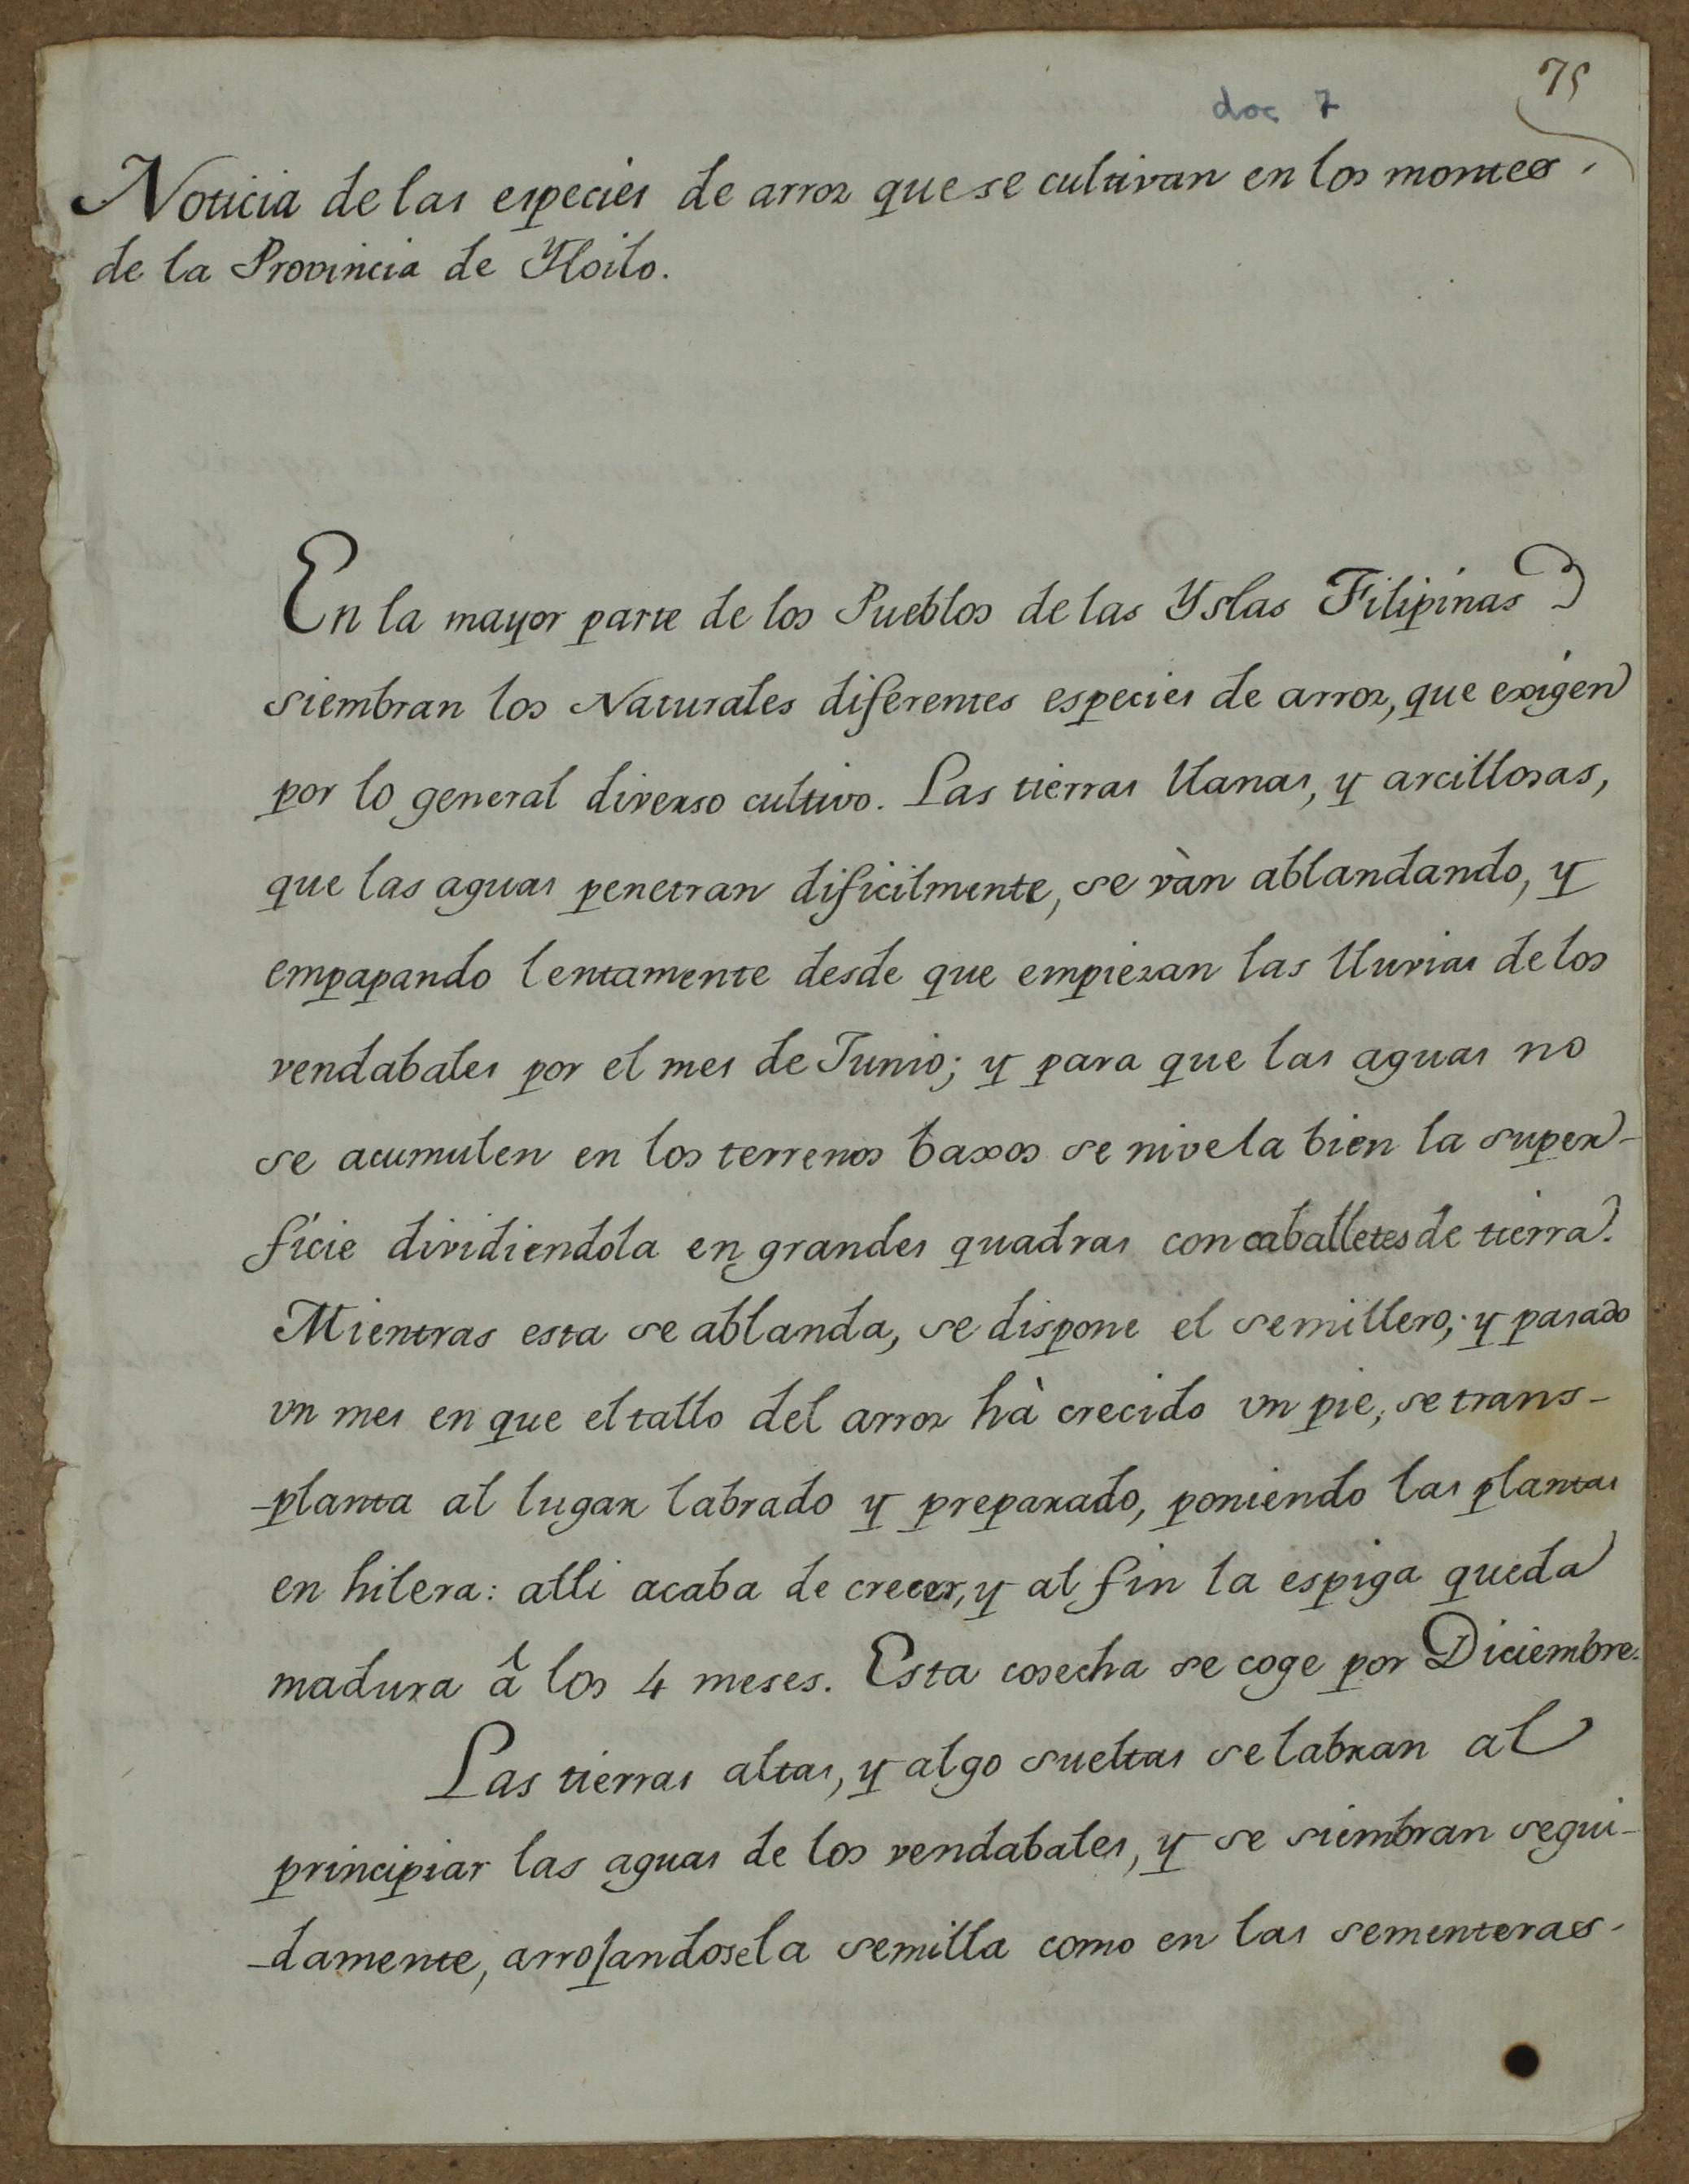 75
doc 7
Noticia de las especies de arroz que se cultivan en los montes
de la Provincia de Yloilo.
En la mayor parte de los Pueblos de las Yslas Filipinas
siembran los Naturales diferentes especies de arroz, que exigen
por lo general diverso cultivo. Las tierras llanas, y arcillosas,
que las aguas penetran dificilmente, se vàn ablandando, y
empapando lentamente desde que empiezan las lluvias de los
vendabales por el mes de Junio; y para que las aguas no
se acumulen en los terrenos baxos se nivela bien la super-
ficie dividiendola en grandes quadras con caballetes de tierra.
Mientras esta se ablanda, se dispone el semillero; y pasado
vn mes en que el tallo del arroz hà crecido vn pie, se trans-
-planta al lugar labrado y preparado, poniendo las plantas
en hilera: alli acaba de crecer, y al fin la espiga queda
madura à los 4 meses. Esta cosecha se coge por Diciembre.
Las tierras altas, y algo sueltas se labran al
principiar las aguas de los vendabales, y se siembran segui-
-damente, arrojandose la semilla como en las sementeras